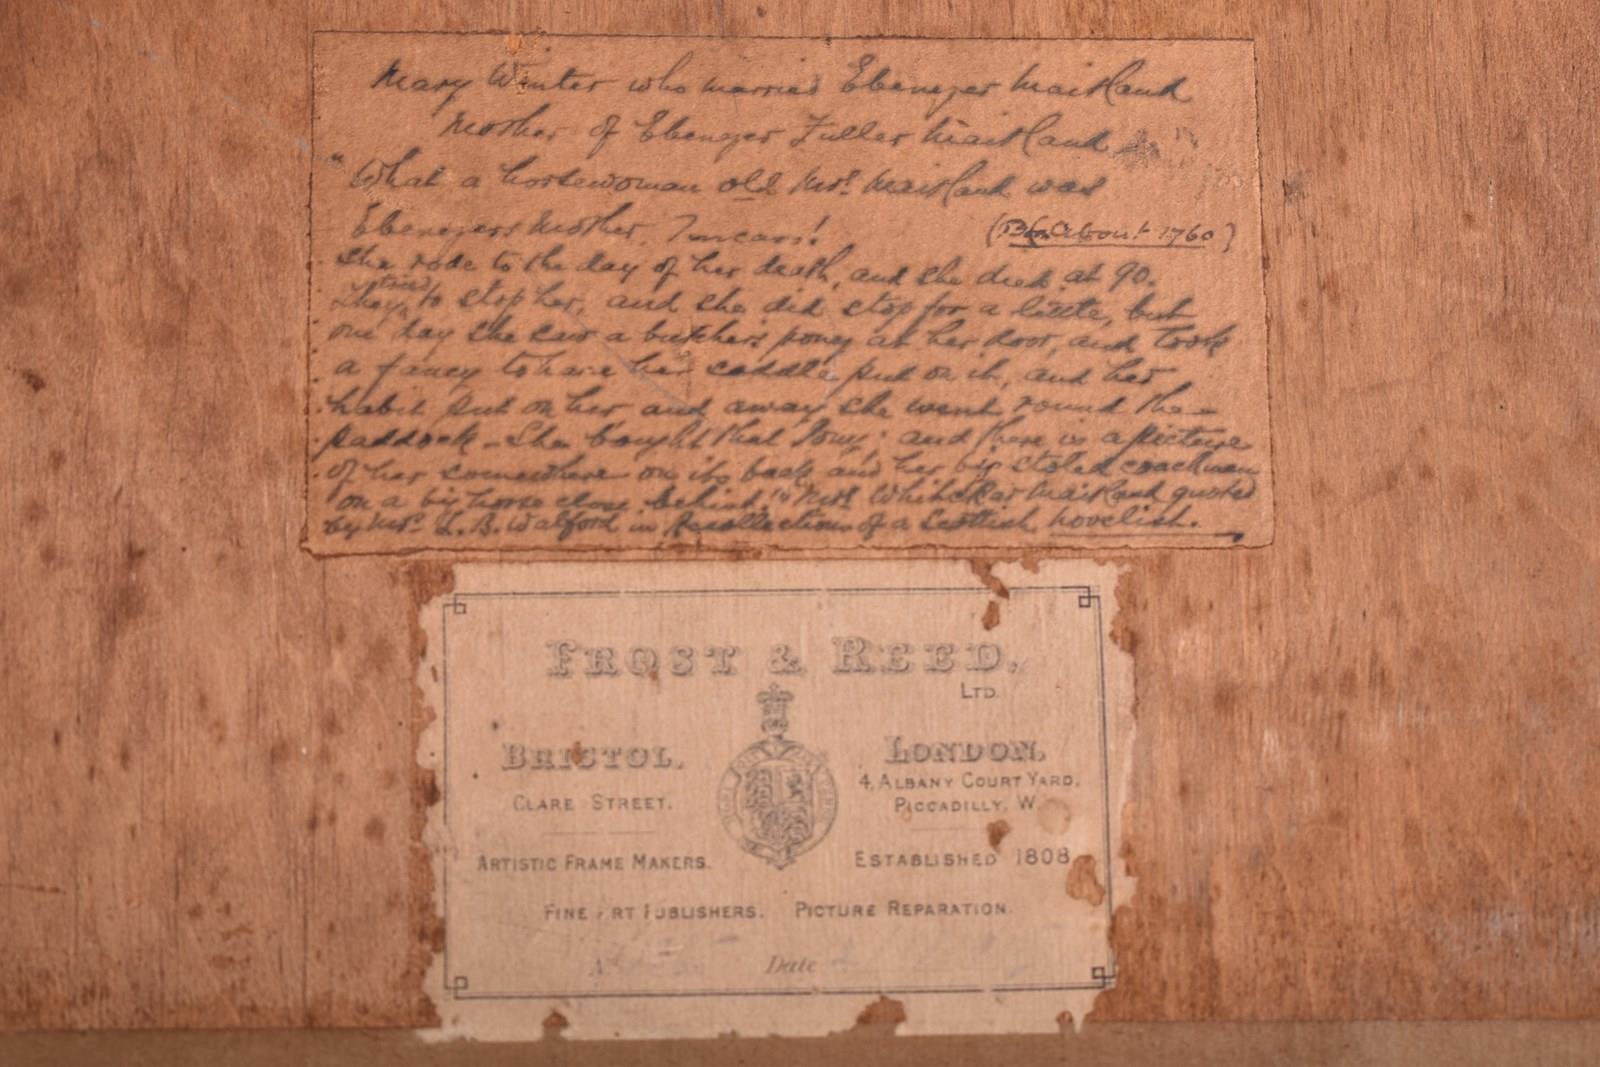 Mary Winter who married Ebenezer Maitland
Mother of Ebenezer Fuller Maitland
"What a horsewoman old Mrs. Maitland was
Ebenezers Mother, I mean!
(B about 1760)
She rode to the day of her death, and she died at 90.
They tried to stop her, and she did stop for a little, but
one day she saw a butcher's pony at her door, and took
a fancy to have her saddle put on it, and her
habit put on her and away she went round the
paddock - She bought that Pony; and there is a picture
of her somewhere on its back and her big stolid coachman
on a big horse close behind!" Mrs. Whitaker Maitland quoted
by Mrs. L. B. Walford in Recollections of a Scottish novelist.
FROST & REED,
LTD.
BRISTOL.
CLARE STREET.
LONDON.
4, ALBANY COURT YARD.
PICCADILLY, W.
ARTISTIC FRAME MAKERS.
ESTABLISHED 1808
FINE ART PUBLISHERS. PICTURE REPARATION.
Date